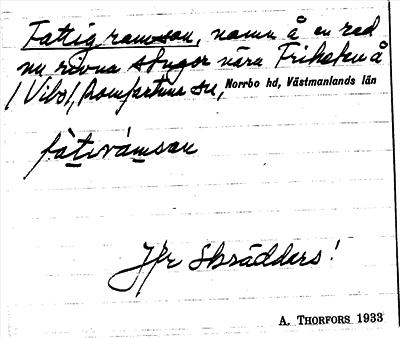 Fattig ramsan, namn å en rad
nu rivna stugor nära Friheten å
/Vibo/, Romfartuna sn, Norrbo hd, Västmanlands län
fàtirámsan
Jfr Skrädders!
A. THORFORS 1933